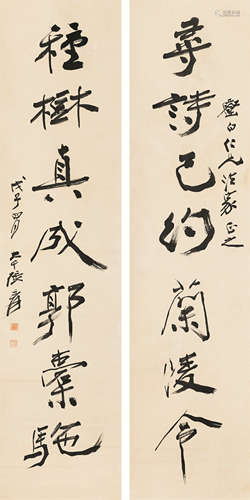 尋詩已約蘭陵令
鑿白仁兄法家正之
種樹真成郭橐駝
戊子四月 大千張爰